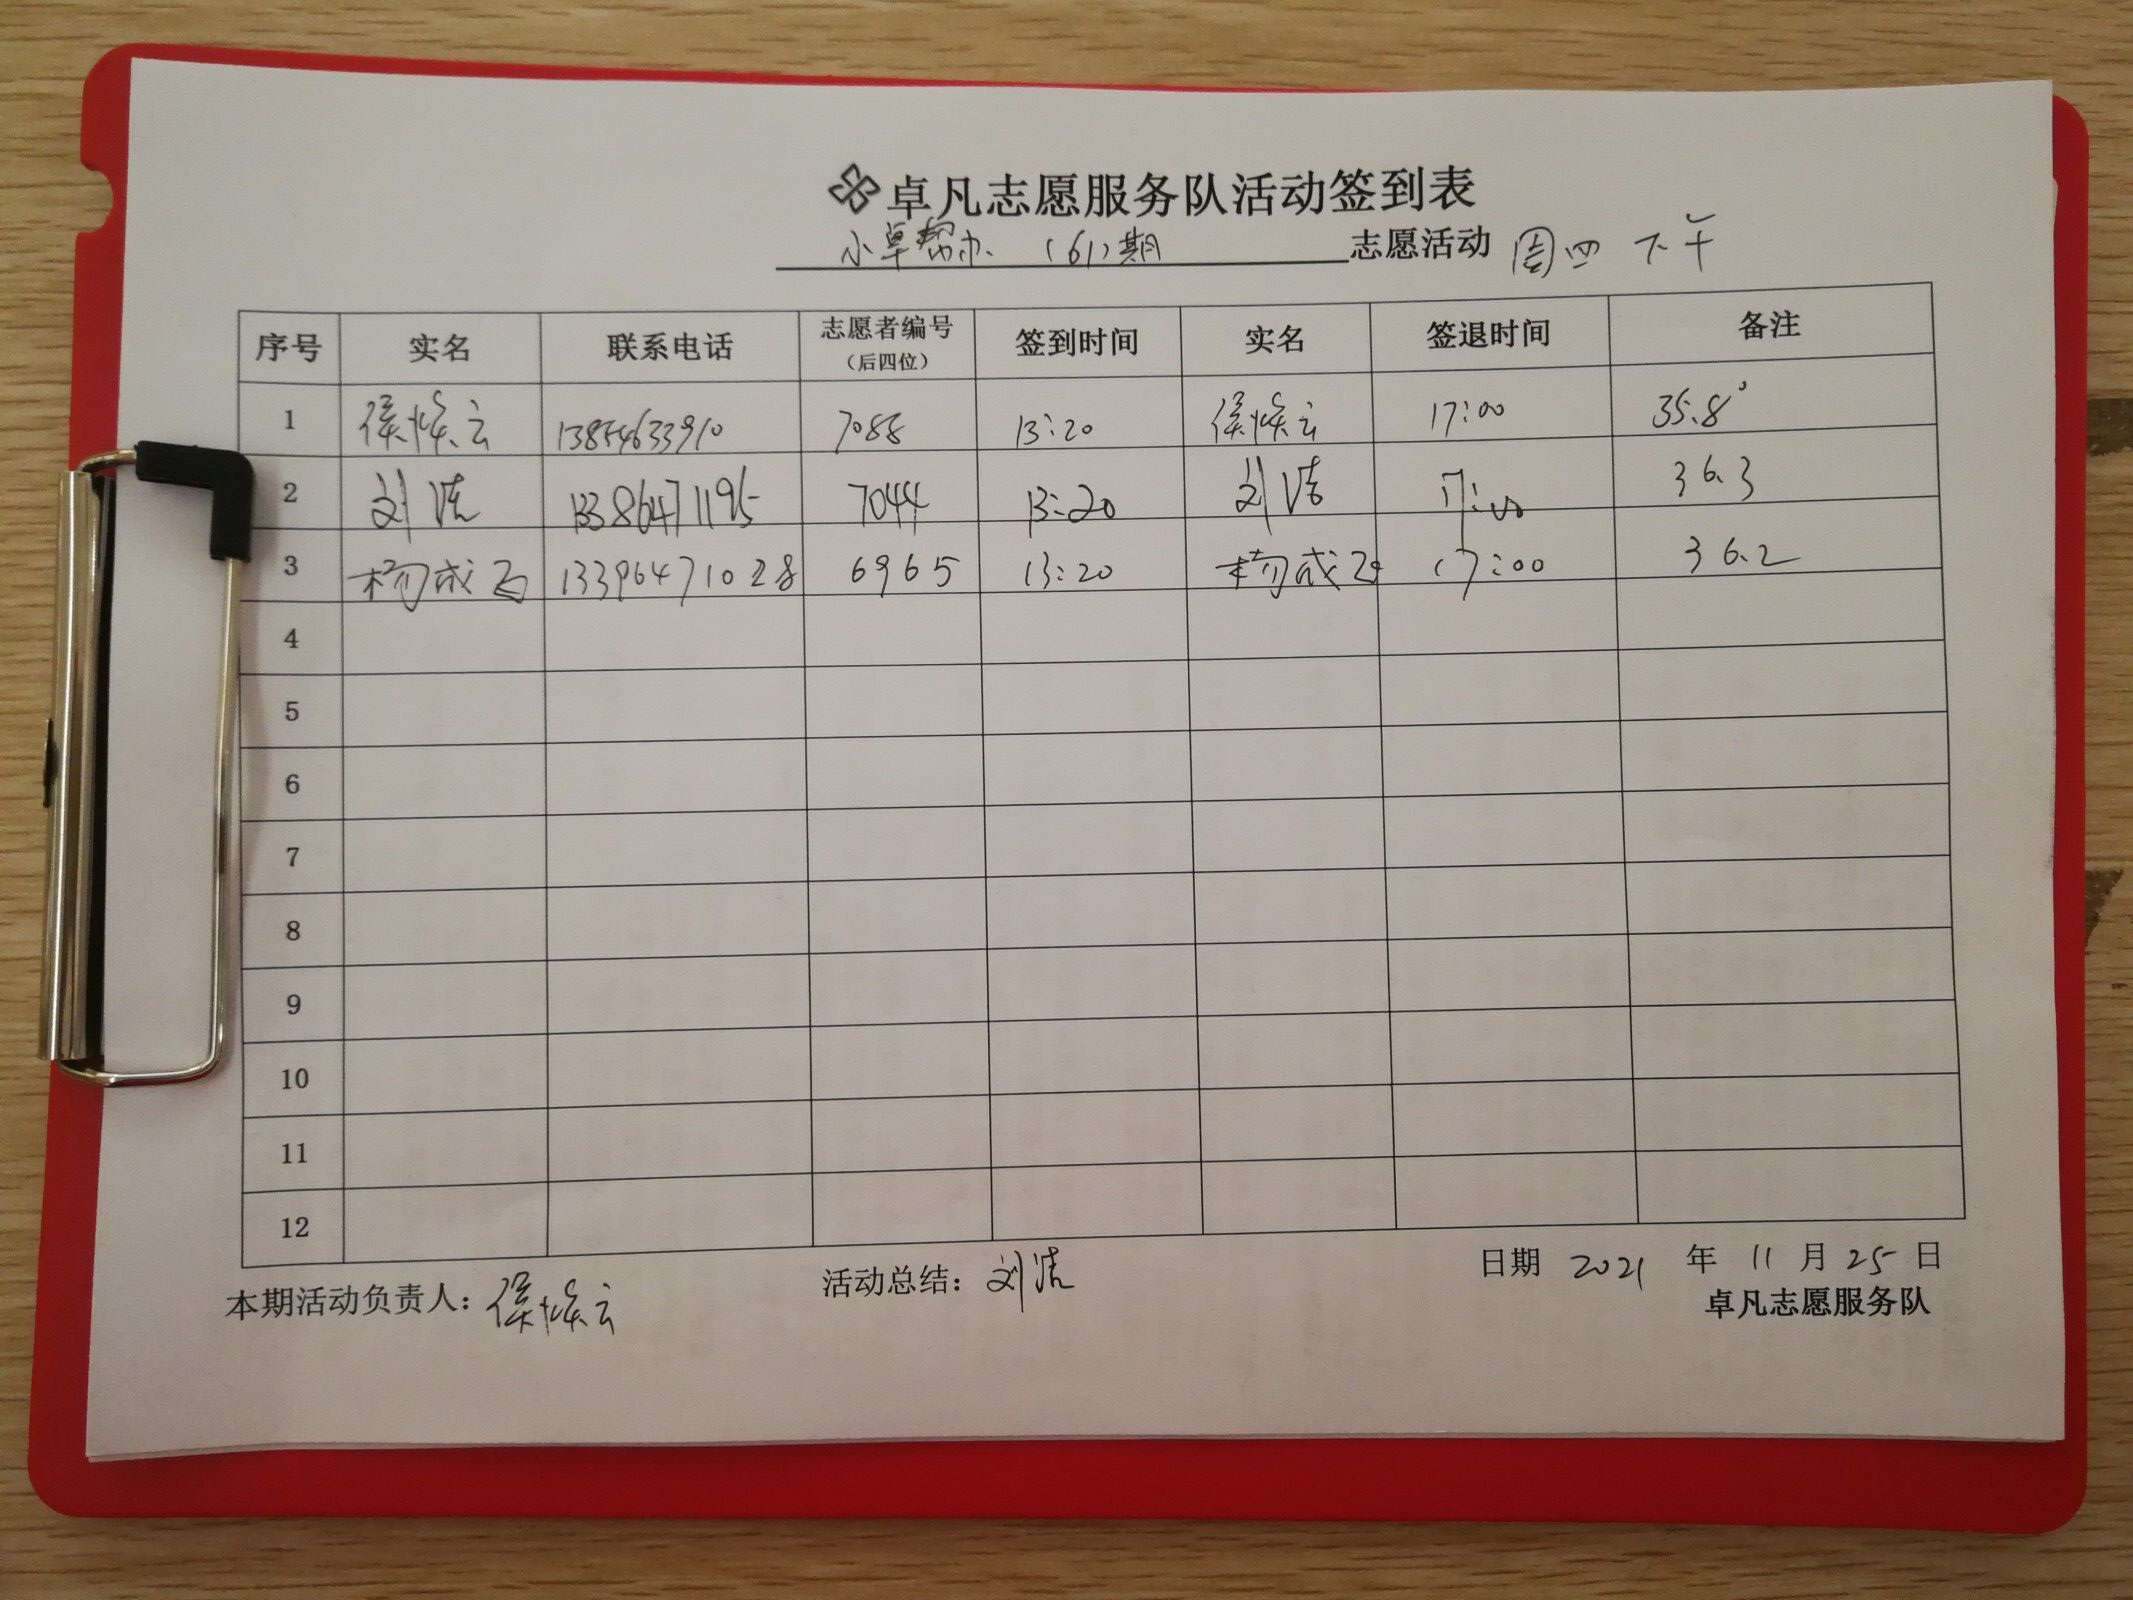 卓凡志愿服务队活动签到表
小卓帮办 (61)期 志愿活动 周四 下午
序号 实名 联系电话 志愿者编号（后四位） 签到时间 实名 签退时间 备注
1 侯焕云 13854633910 7088 13:20 侯焕云 17:00 35.8°
2 刘洁 13386471195 7044 13:20 刘洁 17:00 36.3
3 杨成 13396471028 6965 13:20 杨成 17:00 36.2
4
5
6
7
8
9
10
11
12
本期活动负责人：侯焕云 活动总结：刘洁 日期 2021 年 11 月 25 日
卓凡志愿服务队